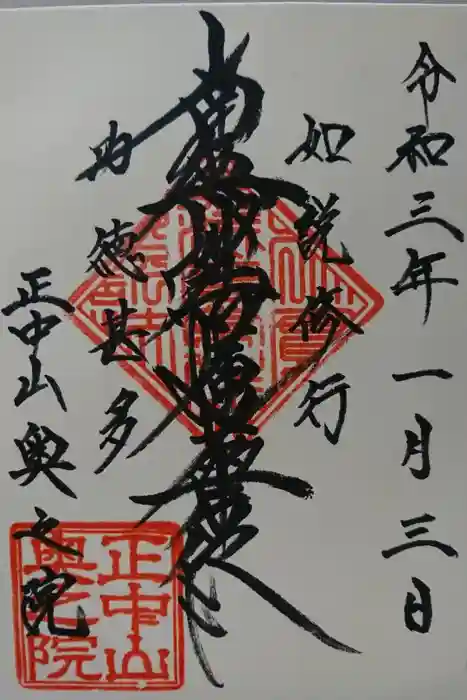 令和三年一月三日
如説修行
南無妙法蓮華経
功徳甚多
正中山奥之院
正中山
奥之院